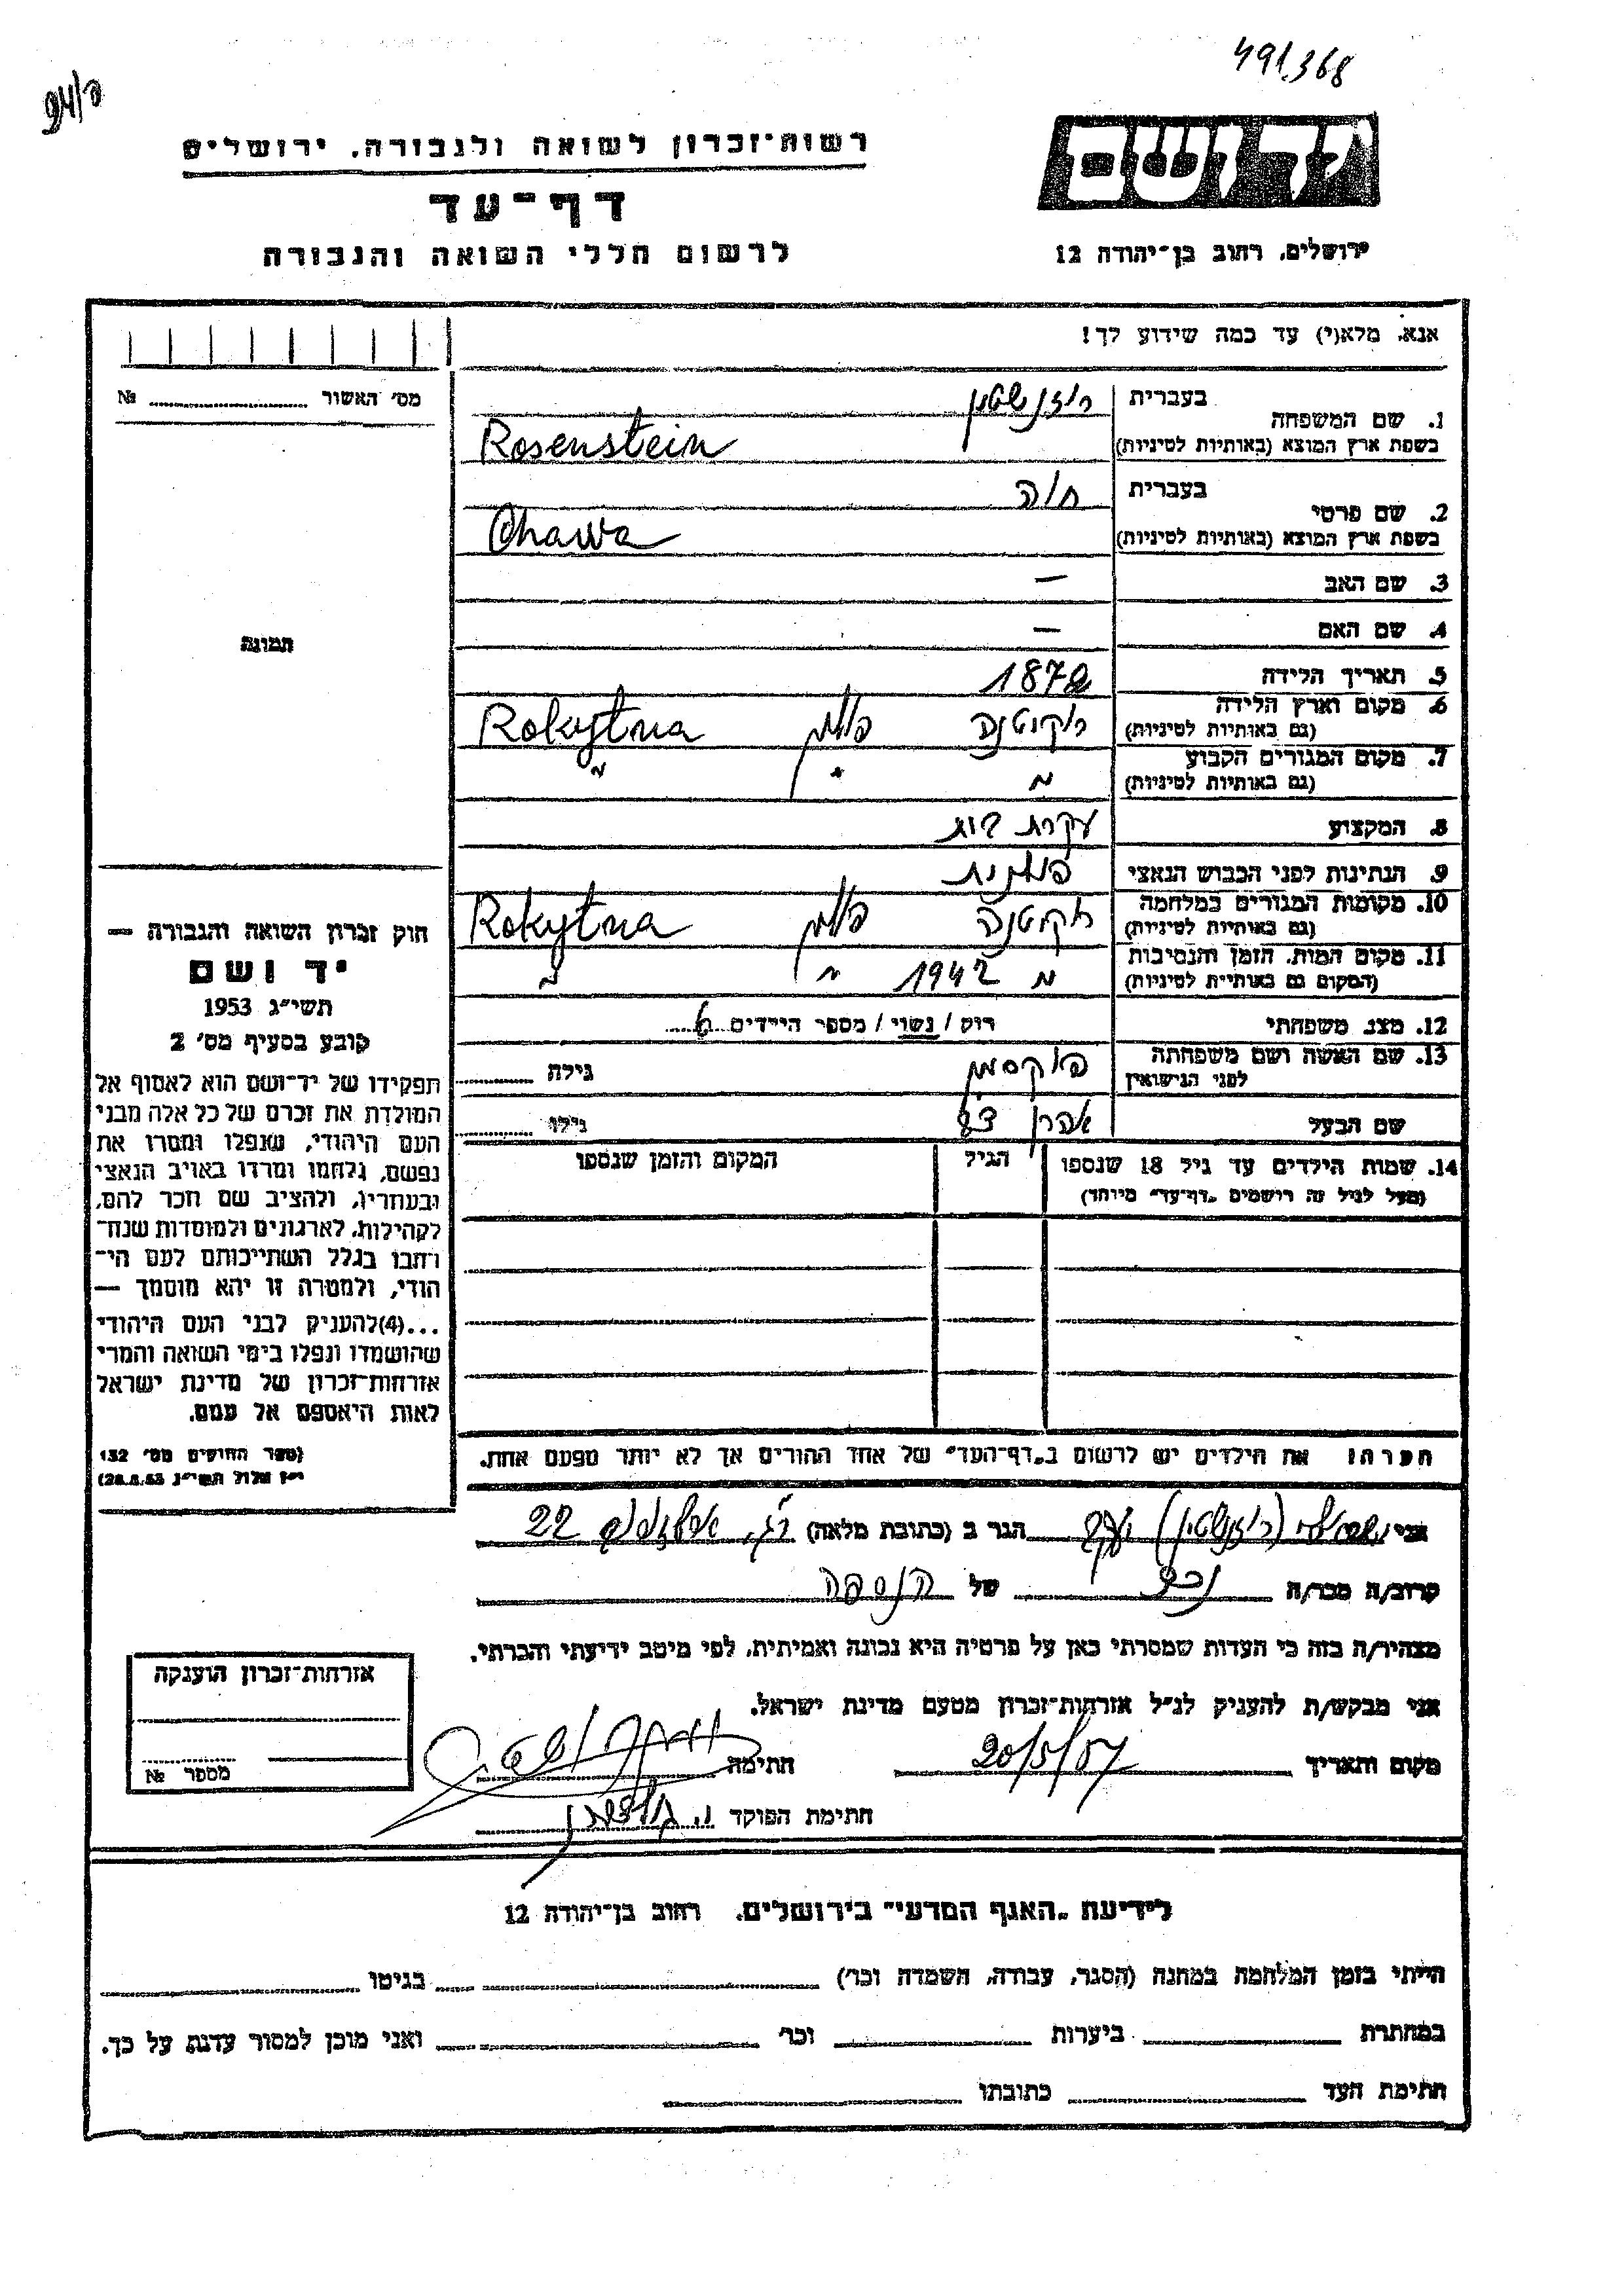 491368
94/ק
רשות-זכרון לשואה ולגבורה, ירושלים
דף-עד
לרשום חללי השואה והגבורה
יד ושם
ירושלים, רחוב בן-יהודה 12
אנא, מלא(י) עד כמה שידוע לך!
מס' האשור №
1. שם המשפחה
בעברית רוזנשטין
בשפת ארץ המוצא (באותיות לטיניות) Rosenstein
2. שם פרטי
בעברית חוה
בשפת ארץ המוצא (באותיות לטיניות) Chawa
3. שם האב —
4. שם האם —
5. תאריך הלידה 1872
6. מקום וארץ הלידה
(גם באותיות לטיניות) רוקיטנה פולין Rokytna
7. מקום המגורים הקבוע
(גם באותיות לטיניות) " " "
8. המקצוע עקרת בית
9. הנתינות לפני הכבוש הנאצי פולנית
10. מקומות המגורים במלחמה
(גם באותיות לטיניות) רוקיטנה פולין Rokytna
11. מקום המות, הזמן והנסיבות
(המקום גם באותיות לטיניות) " 1942 " "
12. מצב משפחתי רוק / נשוי / מספר הילדים 6
13. שם האשה ושם משפחתה
לפני הנישואין פוקסמן גילה
שם הבעל אהרן דב גילו
14. שמות הילדים עד גיל 18 שנספו
(מעל לגיל זה רושמים „דף-עד" מיוחד)
הגיל
המקום והזמן שנספו
תמונה
חוק זכרון השואה והגבורה —
יד ושם
תשי"ג 1953
קובע בסעיף מס' 2
תפקידו של יד-ושם הוא לאסוף אל
המולדת את זכרם של כל אלה מבני
העם היהודי, שנפלו ומסרו את
נפשם, נלחמו ומרדו באויב הנאצי
ובעוזריו, ולהציב שם וזכר להם,
לקהילות, לארגונים ולמוסדות שנח-
רבו בגלל השתייכותם לעם הי-
הודי, ולמטרה זו יהא מוסמך —
...(4)להעניק לבני העם היהודי
שהושמדו ונפלו בימי השואה והמרי
אזרחות-זכרון של מדינת ישראל
לאות היאספם אל עמם.
(ספר החוקים מס' 132
י"ז אלול תשי"ג 28.8.53)
הערה: את הילדים יש לרשום ב„דף-העד" של אחד ההורים אך לא יותר מפעם אחת.
אני (רוזנשטין) יעקב הגר ב (כתובת מלאה) 22
קרוב/ה מכר/ה נכד של הנספה
מצהיר/ה בזה כי העדות שמסרתי כאן על פרטיה היא נכונה ואמיתית, לפי מיטב ידיעתי והכרתי.
אני מבקש/ת להעניק לנ"ל אזרחות-זכרון מטעם מדינת ישראל.
מקום ותאריך 20/5/57 חתימה
חתימת הפוקד
אזרחות-זכרון הוענקה
מספר №
לידיעת „האגף המדעי" בירושלים, רחוב בן-יהודה 12
הייתי בזמן המלחמה במחנה (הסגר, עבודה, השמדה וכו') בגיטו
במחתרת ביערות וכו' ואני מוכן למסור עדות על כך.
חתימת העד כתובתו